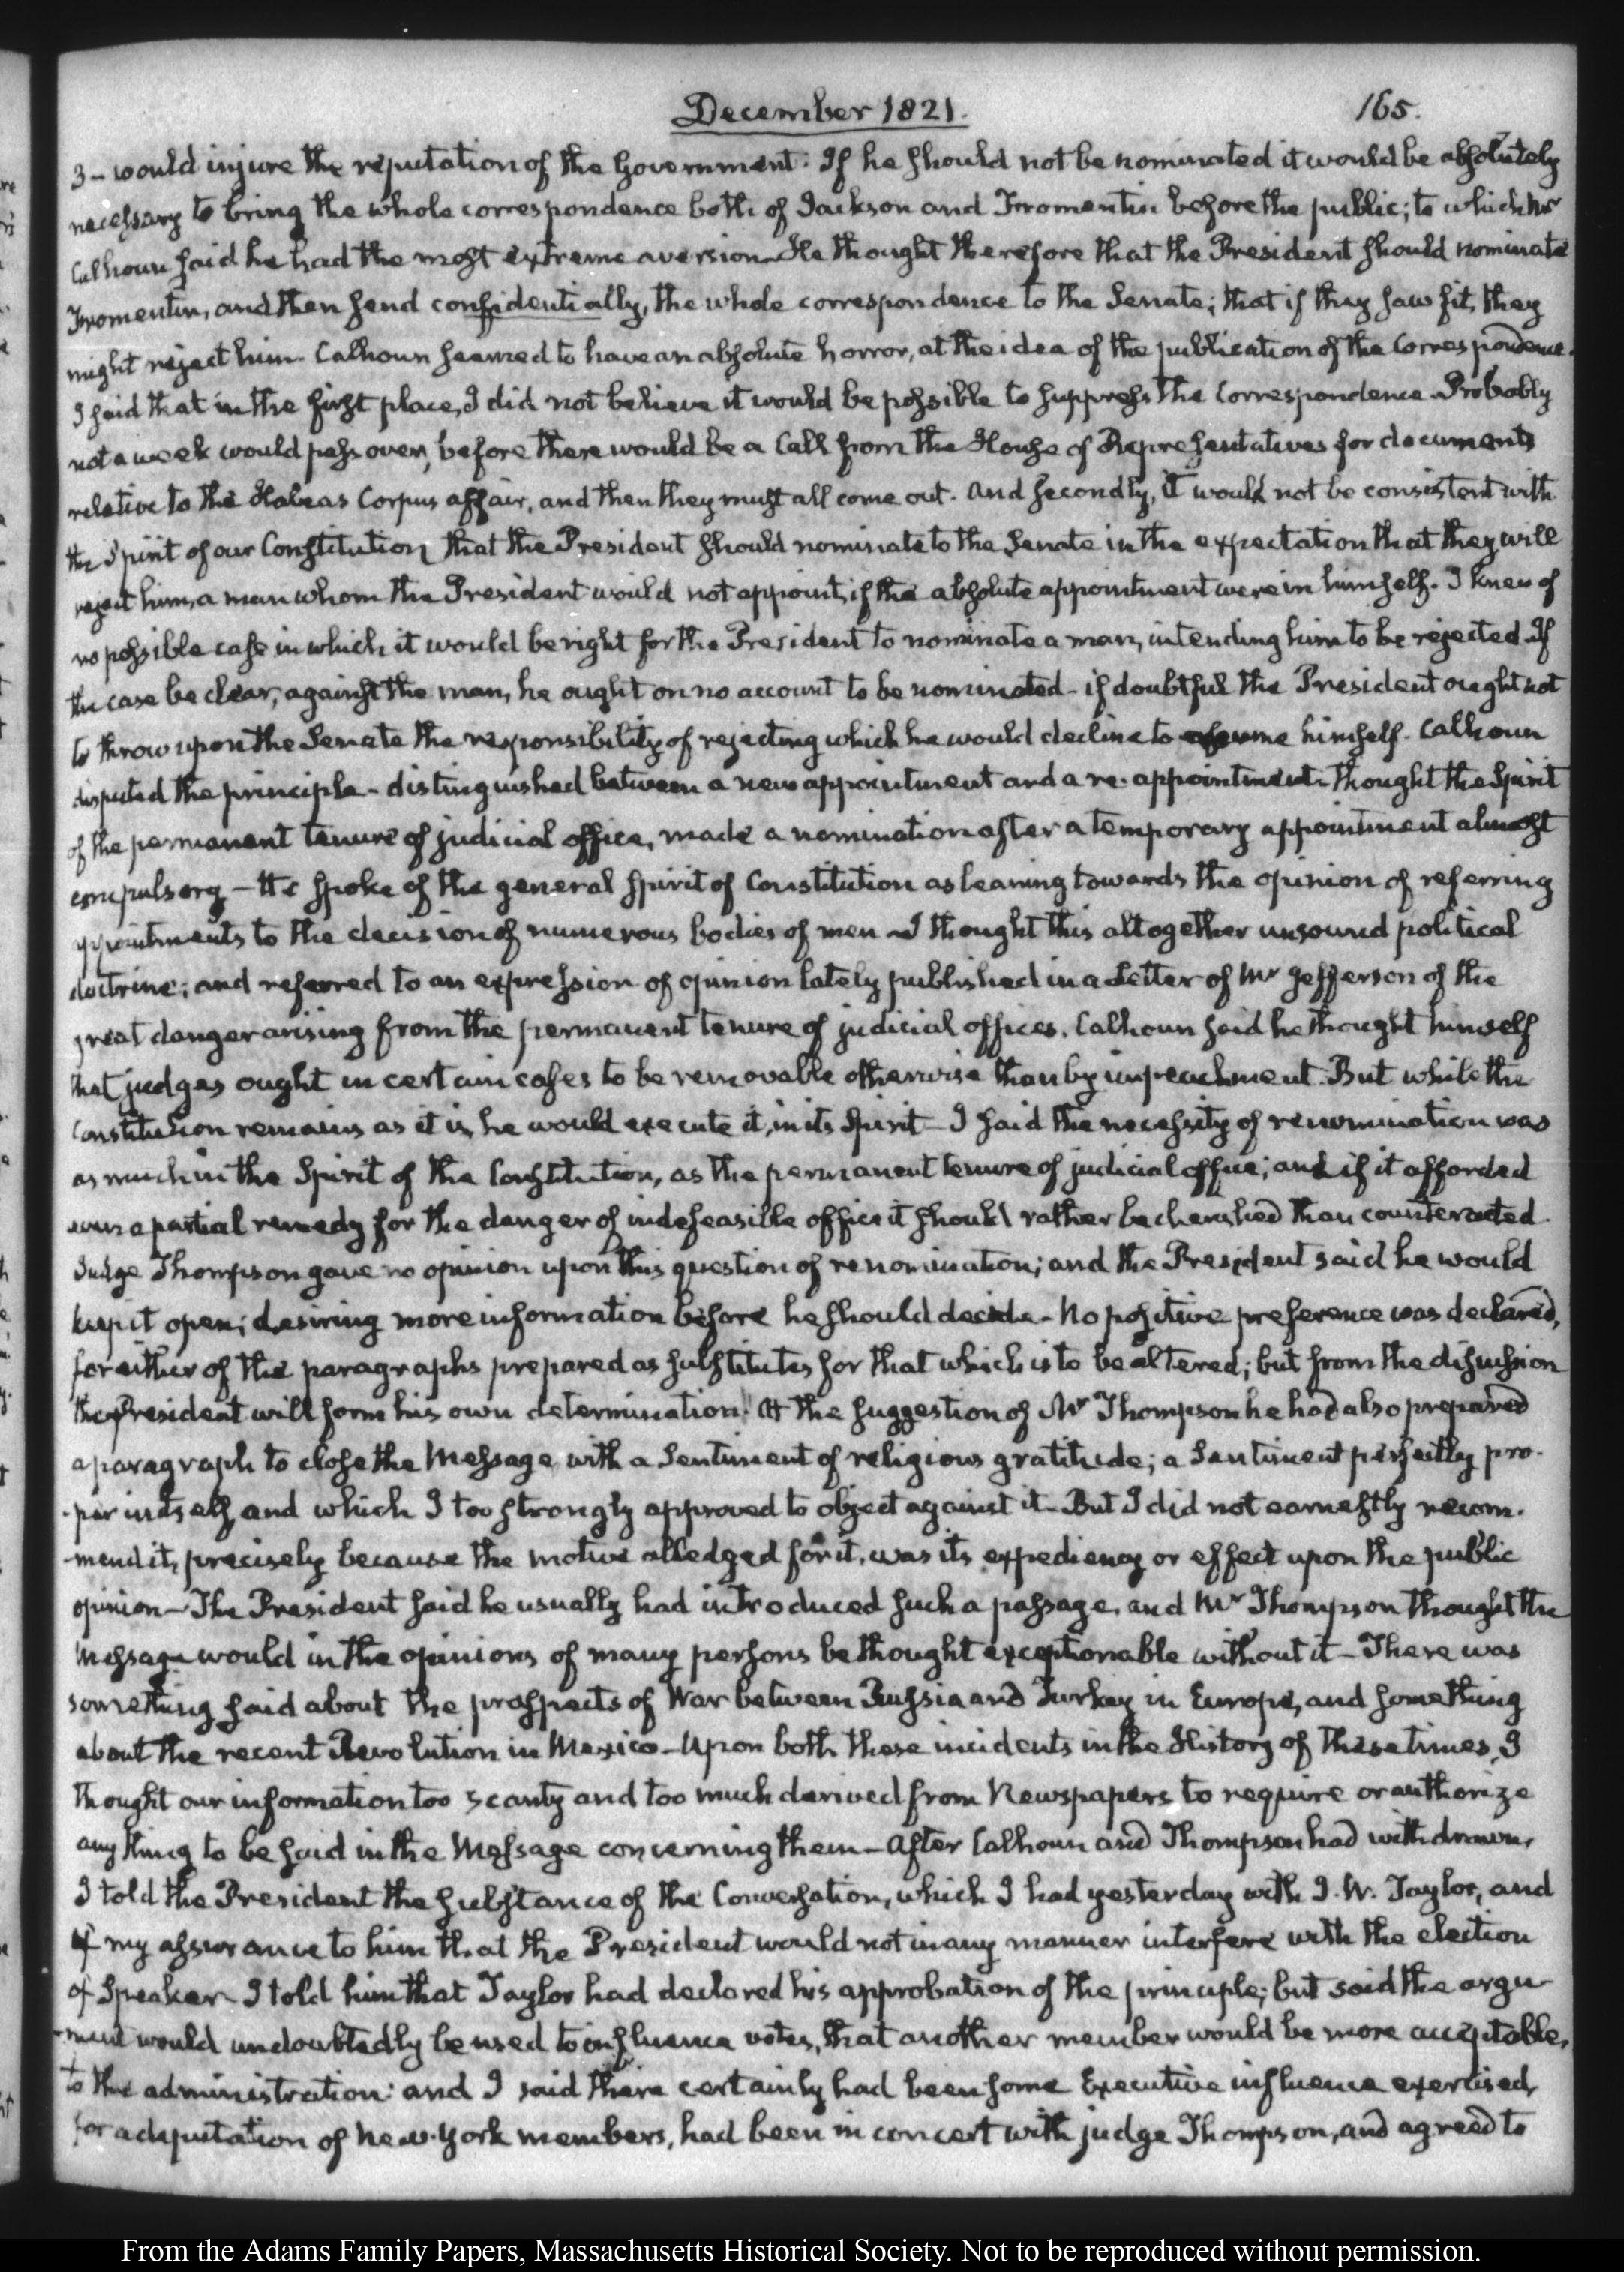 December 1821.
165.
3 - would injure the reputation of the Government. If he should not be nominated it would be absolutely
necessary to bring the whole correspondence both of Jackson and Fromentin before the public; to which Mr
Calhoun said he had the most extreme aversion - He thought therefore that the President should nominate
Fromentin, and then send confidentially, the whole correspondence to the Senate; that if they saw fit, they
might reject him. Calhoun seemed to have an absolute horror, at the idea of the publication of the Correspondence.
I said that in the first place, I did not believe it would be possible to suppress the Correspondence. Probably
not a week would pass over, before there would be a Call from the House of Representatives for documents
relative to the Habeas Corpus affair, and then they must all come out. And secondly, it would not be consistent with
the Spirit of our Constitution that the President should nominate to the Senate in the expectation that they will
reject him, a man whom the President would not appoint, if the absolute appointment were in himself. I knew of
no possible case in which it would be right for the President to nominate a man, intending him to be rejected. If
the case be clear, against the man, he ought on no account to be nominated - if doubtful the President ought not
to throw upon the Senate the responsibility of rejecting which he would decline to assume himself. Calhoun
disputed the principle - distinguished between a new appointment and a re-appointment - thought the Spirit
of the permanent tenure of judicial office, made a nomination after a temporary appointment almost
compulsory - He spoke of the general spirit of Constitution as leaning towards the opinion of referring
appointments to the decision of numerous bodies of men - I thought this altogether unsound political
doctrine; and referred to an expression of opinion lately published in a Letter of Mr Jefferson of the
great danger arising from the permanent tenure of judicial offices. Calhoun said he thought himself
that judges ought in certain cases to be removable otherwise than by impeachment. But while the
Constitution remains as it is, he would execute it, in its Spirit - I said the necessity of renomination was
as much in the Spirit of the Constitution, as the permanent tenure of judicial office; and if it afforded
even a partial remedy for the danger of indefeasible office it should rather be cherished than counteracted.
Judge Thompson gave no opinion upon this question of renomination; and the President said he would
keep it open; desiring more information before he should decide - No positive preference was declared,
for either of the paragraphs prepared as substitutes for that which is to be altered; but from the discussion
the President will form his own determination. At the suggestion of Mr Thompson he had also prepared
a paragraph to close the Message with a Sentiment of religious gratitude; a Sentiment perfectly pro-
-per in itself, and which I too strongly approved to object against it - But I did not earnestly recom-
-mend it, precisely because the motive alledged for it, was its expediency or effect upon the public
opinion - The President said he usually had introduced such a passage, and Mr Thompson thought the
Message would in the opinions of many persons be thought exceptionable without it - There was
something said about the prospects of War between Russia and Turkey in Europe, and something
about the recent Revolution in Mexico - Upon both these incidents in the History of these times, I
thought our information too scanty and too much derived from Newspapers to require or authorize
any thing to be said in the Message concerning them - After Calhoun and Thompson had withdrawn,
I told the President the substance of the Conversation, which I had yesterday with J. W. Taylor, and
of my assurance to him that the President would not in any manner interfere with the election
of Speaker - I told him that Taylor had declared his approbation of the principle; but said the argu-
-ment would undoubtedly be used to influence votes, that another member would be more acceptable,
to the administration: and I said there certainly had been some Executive influence exercised,
for a deputation of New-York members, had been in concert with judge Thompson, and agreed to
From the Adams Family Papers, Massachusetts Historical Society. Not to be reproduced without permission.